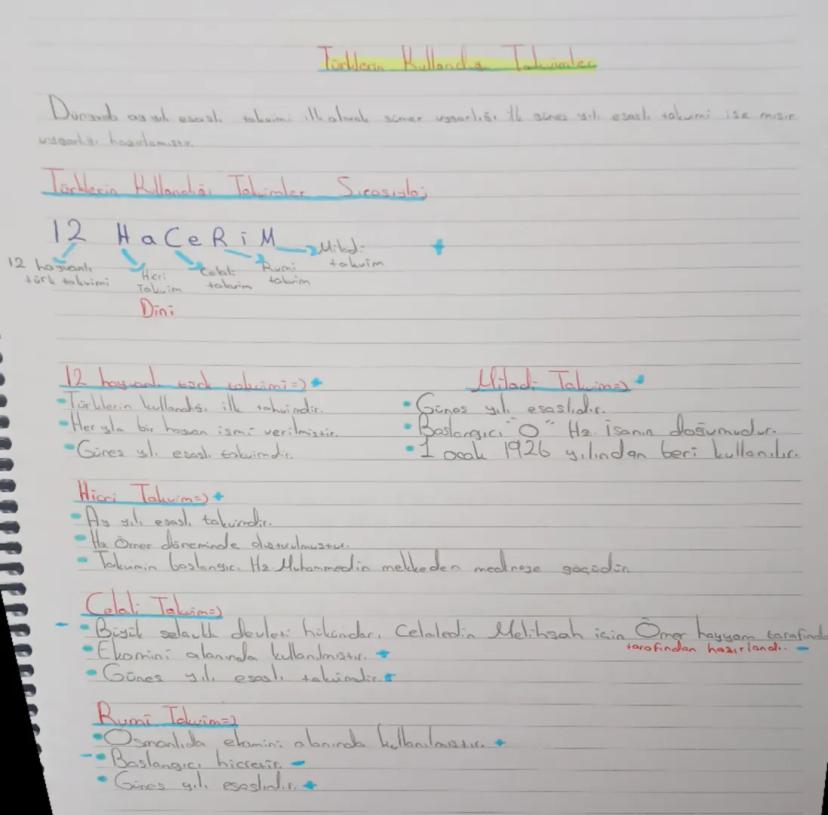 Türklerin Kullandığı Takvimler
Dünyada ay yılı esaslı takvimi ilk olarak sümer uygarlığı ilk güneş yılı esaslı takvimi ise mısır
uygarlığı hazırlamıştır.
Türklerin Kullandığı Takvimler Sırasıyla;
12 HaCeRiM
Miladi takvim
12 hayvanlı türk takvimi
Hicri Takvim
Celali takvim
Rumi takvim
Dini
12 hayvanlı türk takvimi=>
Türklerin kullandığı ilk takvimdir.
Her yıla bir hayvan ismi verilmiştir.
Güneş yılı esaslı takvimdir.
Miladi Takvim=>
Güneş yılı esaslıdır.
Başlangıcı "0" Hz İsanın doğumudur.
1 ocak 1926 yılından beri kullanılır.
Hicri Takvim=>
Ay yılı esaslı takvimdir.
Hz Ömer döneminde oluşturulmuştur.
Takvimin başlangıcı Hz Muhammedin mekkeden medineye göçüdür.
Celali Takvim=>
Büyük selçuklu devleti hükümdarı Celaledin Melihşah için Ömer hayyam tarafından
tarafından hazırlandı.
Ekomini alanında kullanılmıştır.
Güneş yılı esaslı takvimdir.
Rumi Takvim=>
Osmanlıda ekomini alanında kullanılmıştır.
Başlangıcı hicrettir.
Güneş yılı esaslıdır.